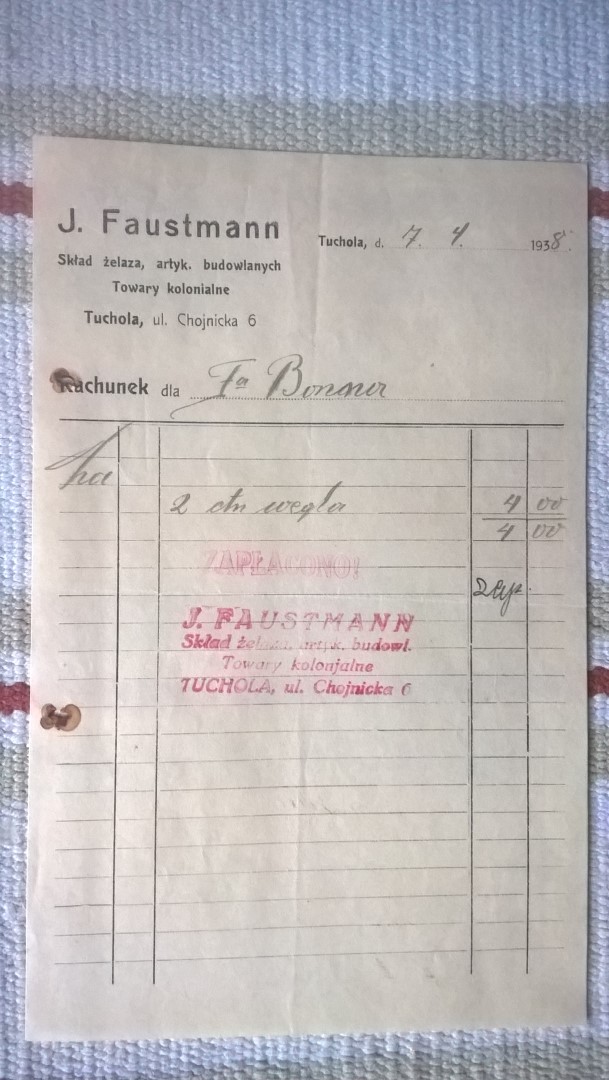 J. Faustmann
Skład żelaza, artyk. budowlanych
Towary kolonialne
Tuchola, ul. Chojnicka 6
Tuchola, d. 7. 4. 1938.
Rachunek dla Fa Bonner
2 ctn węgla 4 00
4 00
ZAPŁACONO!
J. FAUSTMANN
Skład żelaza, artyk. budowl.
Towary kolonjalne
TUCHOLA, ul. Chojnicka 6